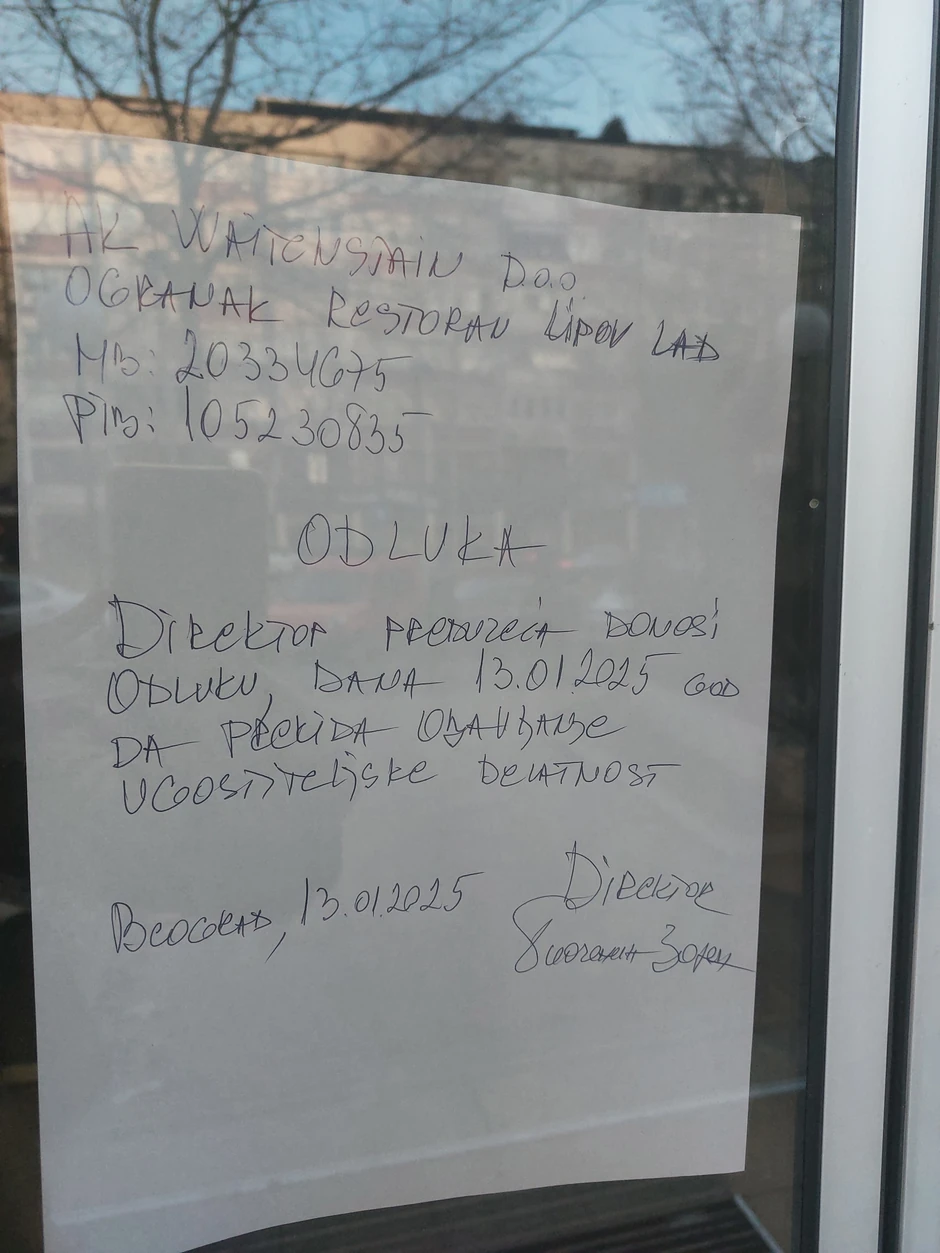 AK WAITENSTAIN D.o.o.
OGRANAK RESTORAN LIPOV LAD
MB: 20334675
PIB: 105230835
ODLUKA
DIREKTOR PREDUZEĆA DONOSI
ODLUKU, DANA 13.01.2025 GOD
DA PREKIDA OBAVLJANJE
UGOSTITELJSKE DELATNOST
BEOGRAD, 13.01.2025
DIREKTOR